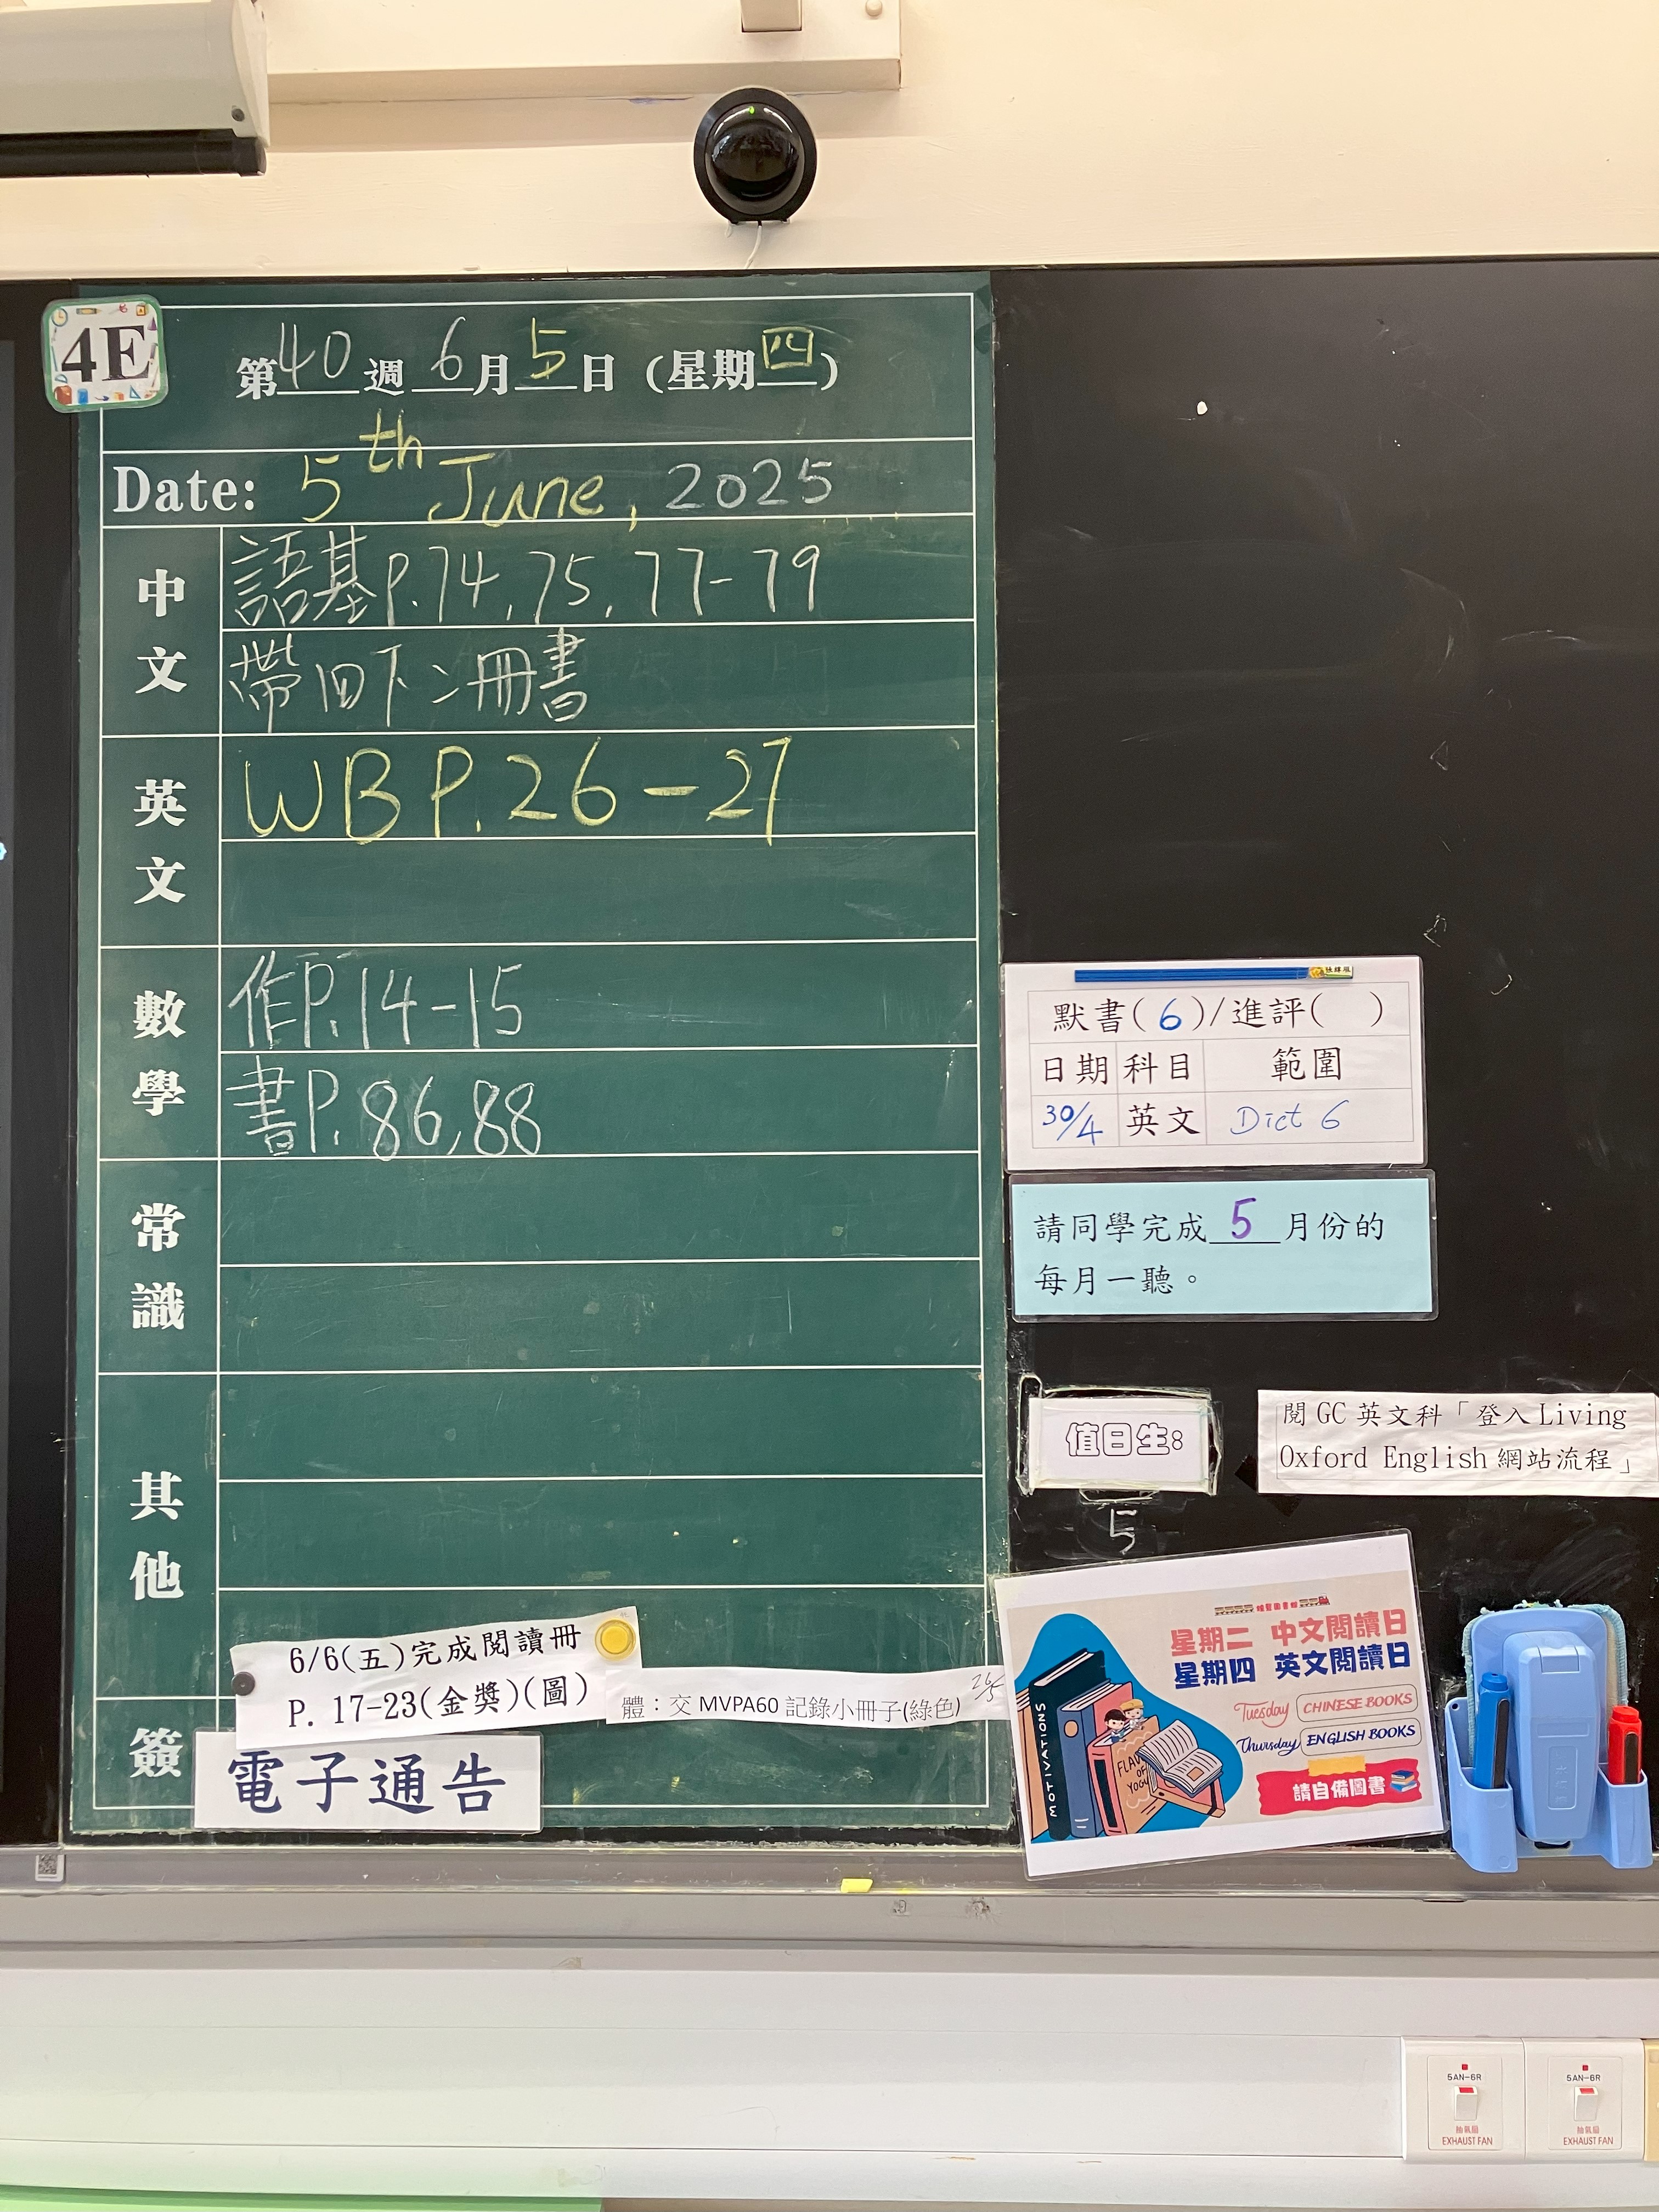 4E
第40週6月5日(星期四)
Date: 5th June, 2025
中文
語基P.74,75,77-79
帶回下二冊書
英文
WB P.26-27
數學
作P.14-15
書P.86,88
常識
其他
6/6(五)完成閱讀冊
P. 17-23(金獎)(圖)
體：交 MVPA60 記錄小冊子(綠色)
26/5
簽
電子通告
默書(6)/進評( )
日期 科目 範圍
30/4 英文 Dict 6
請同學完成 5 月份的
每月一聽。
值日生:
5
閱 GC 英文科「登入 Living
Oxford English 網站流程」
星期二 中文閱讀日
星期四 英文閱讀日
Tuesday CHINESE BOOKS
Thursday ENGLISH BOOKS
請自備圖書
MOTIVATIONS
5AN-6R
抽氣扇
EXHAUST FAN
5AN-6R
抽氣扇
EXHAUST FAN